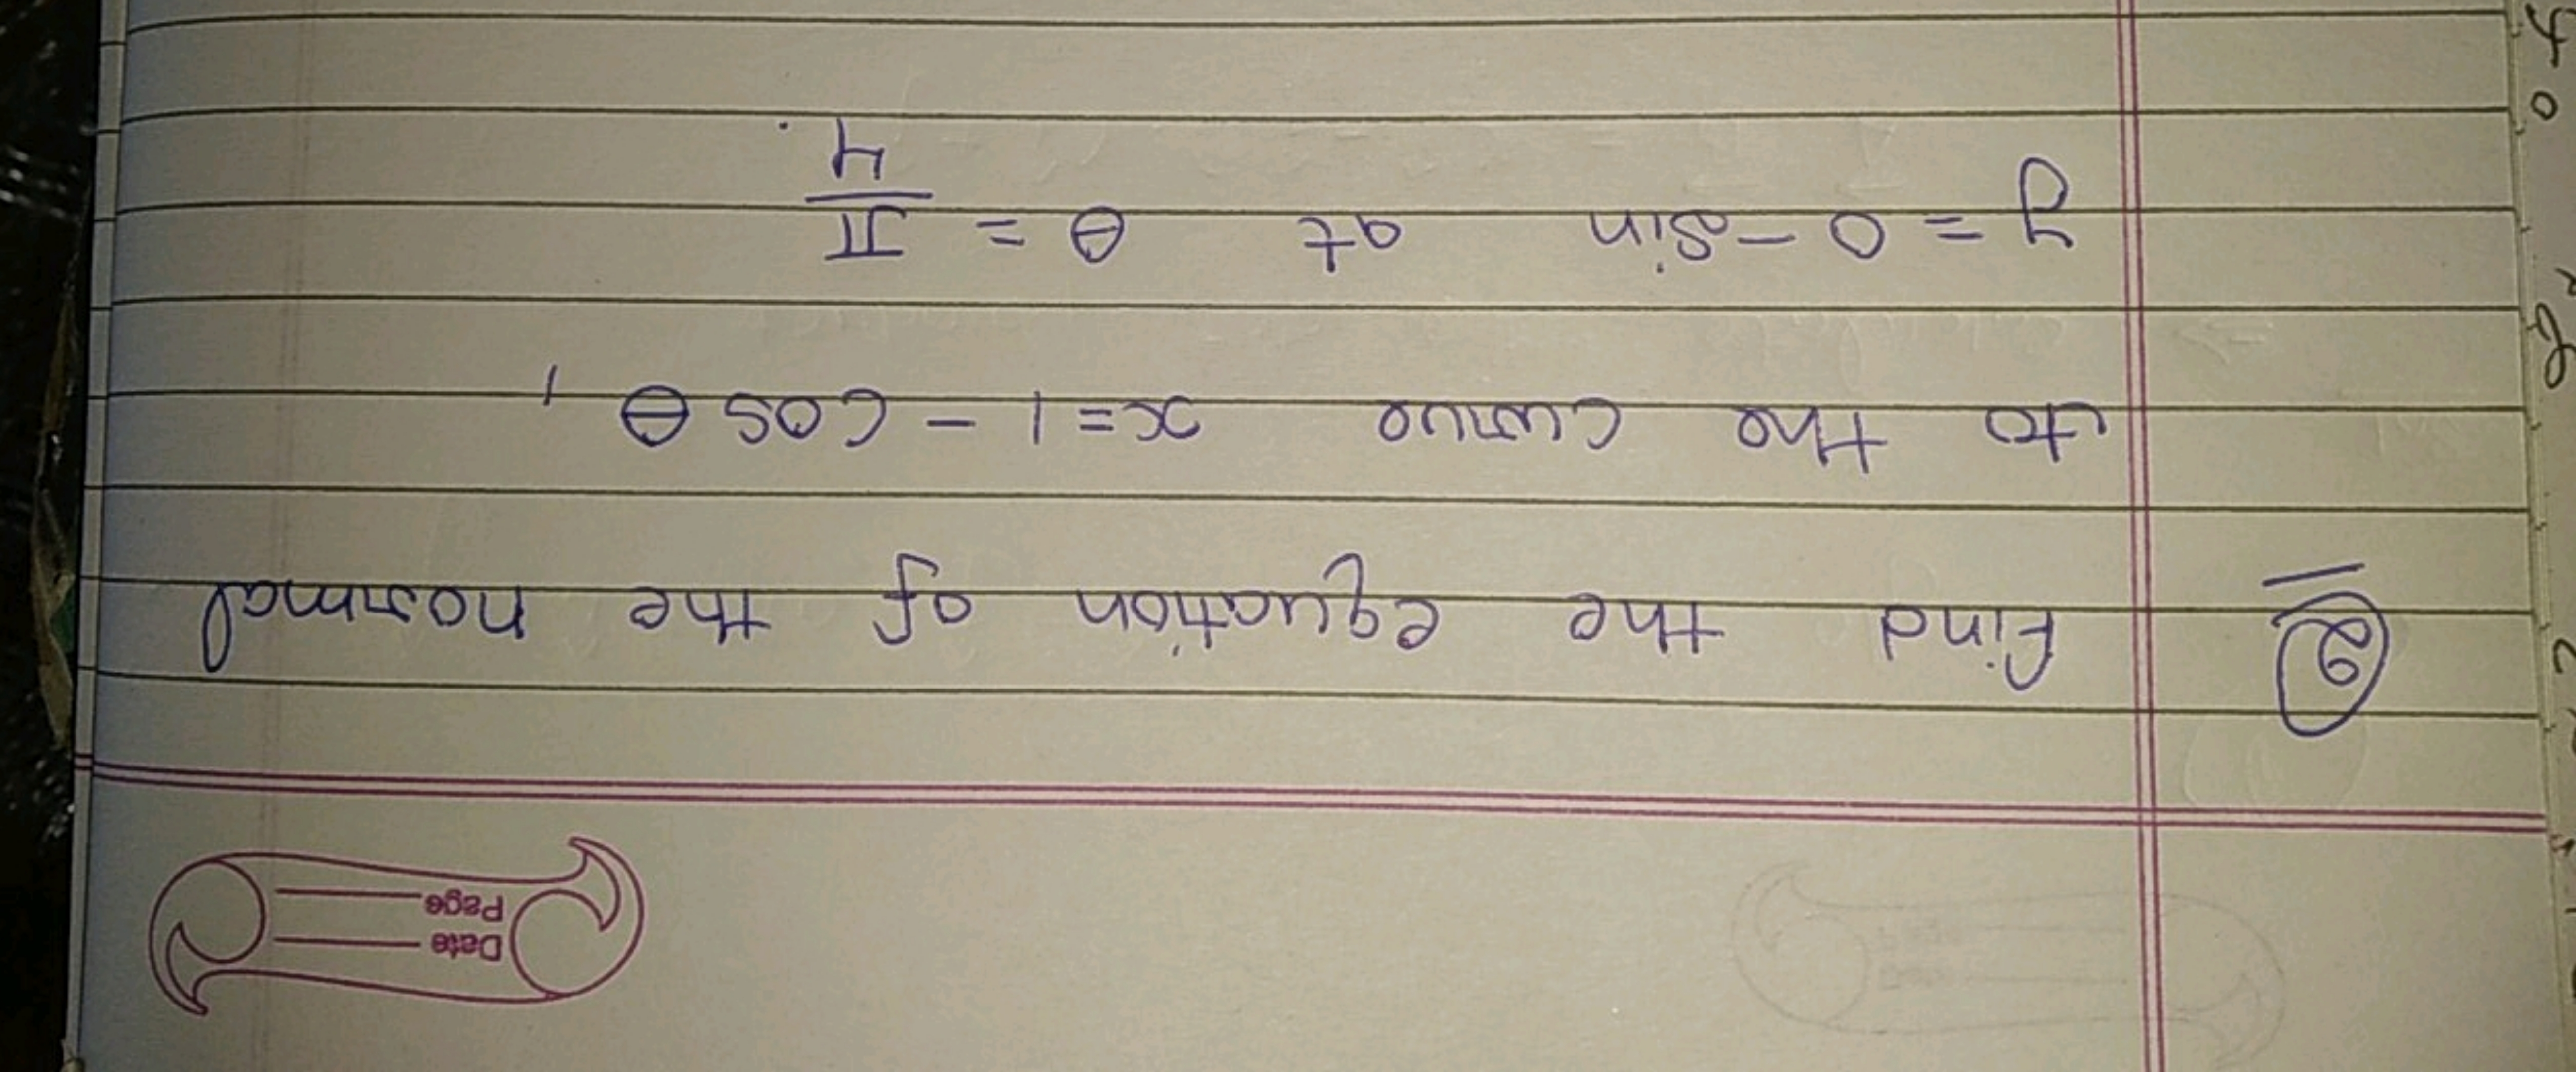 Date
Page
Q Find the equation of the normal
to the curve x = 1 - cos θ,
y = 0 - sin at θ = π/4.